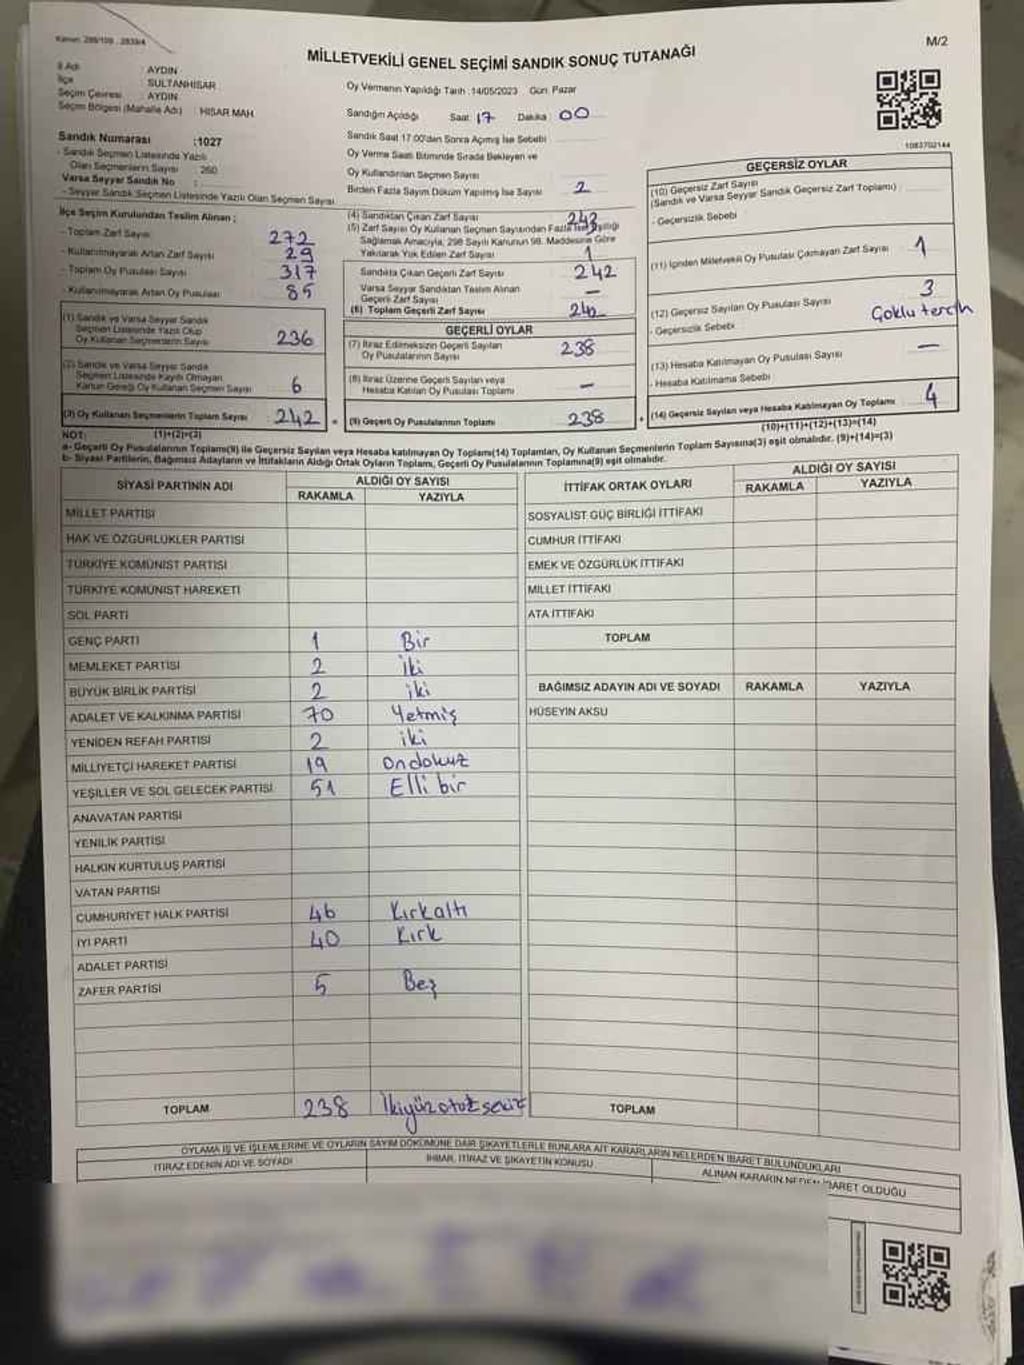 M/2
MİLLETVEKİLİ GENEL SEÇİMİ SANDIK SONUÇ TUTANAĞI
İl Adı : AYDIN
İlçe : SULTANHİSAR
Seçim Çevresi : AYDIN
Seçim Bölgesi (Mahalle Adı) : HİSAR MAH.
Sandık Numarası :1027
- Sandık Seçmen Listesinde Yazılı
Olan Seçmenlerin Sayısı : 260
Varsa Seyyar Sandık No :
- Seyyar Sandık Seçmen Listesinde Yazılı Olan Seçmen Sayısı
Oy Vermenin Yapıldığı Tarih :14/05/2023 Gün: Pazar
Sandığın Açıldığı Saat: 17 Dakika 00
Sandık Saat 17:00'dan Sonra Açılmış İse Sebebi
Oy Verme Saati Bitiminde Sırada Bekleyen ve
Oy Kullandırılan Seçmen Sayısı
Birden Fazla Sayım Döküm Yapılmış İse Sayısı 2
1083702144
İlçe Seçim Kurulundan Teslim Alınan ;
- Toplam Zarf Sayısı 272
- Kullanılmayarak Artan Zarf Sayısı 29
- Toplam Oy Pusulası Sayısı 317
- Kullanılmayarak Artan Oy Pusulası 85
(1) Sandık ve Varsa Seyyar Sandık
Seçmen Listesinde Yazılı Olup
Oy Kullanan Seçmenlerin Sayısı 236
(2) Sandık ve Varsa Seyyar Sandık
Seçmen Listesinde Kayıtlı Olmayan
Kanun Gereği Oy Kullanan Seçmen Sayısı 6
(3) Oy Kullanan Seçmenlerin Toplam Sayısı 242 =
(1)+(2)=(3)
(4) Sandıktan Çıkan Zarf Sayısı 243
(5) Zarf Sayısı Oy Kullanan Seçmen Sayısından Fazla İse Eşitliği
Sağlamak Amacıyla, 298 Sayılı Kanunun 98. Maddesine Göre
Yakılarak Yok Edilen Zarf Sayısı 1
Sandıkta Çıkan Geçerli Zarf Sayısı 242
Varsa Seyyar Sandıktan Teslim Alınan
Geçerli Zarf Sayısı —
(6) Toplam Geçerli Zarf Sayısı 242
GEÇERLİ OYLAR
(7) İtiraz Edilmeksizin Geçerli Sayılan
Oy Pusulalarının Sayısı 238
(8) İtiraz Üzerine Geçerli Sayılan veya
Hesaba Katılan Oy Pusulası Toplamı —
(9) Geçerli Oy Pusulalarının Toplamı 238 +
GEÇERSİZ OYLAR
(10) Geçersiz Zarf Sayısı
(Sandık ve Varsa Seyyar Sandık Geçersiz Zarf Toplamı)
- Geçersizlik Sebebi
(11) İçinden Milletvekili Oy Pusulası Çıkmayan Zarf Sayısı 1
(12) Geçersiz Sayılan Oy Pusulası Sayısı 3
- Geçersizlik Sebebi Çoklu tercih
(13) Hesaba Katılmayan Oy Pusulası Sayısı —
- Hesaba Katılmama Sebebi
(14) Geçersiz Sayılan veya Hesaba Katılmayan Oy Toplamı 4
(10)+(11)+(12)+(13)=(14)
NOT:
a- Geçerli Oy Pusulalarının Toplamı(9) ile Geçersiz Sayılan veya Hesaba katılmayan Oy Toplamı(14) Toplamları, Oy Kullanan Seçmenlerin Toplam Sayısına(3) eşit olmalıdır. (9)+(14)=(3)
b- Siyasi Partilerin, Bağımsız Adayların ve İttifakların Aldığı Ortak Oyların Toplamı, Geçerli Oy Pusulalarının Toplamına(9) eşit olmalıdır.
SİYASİ PARTİNİN ADI ALDIĞI OY SAYISI
RAKAMLA YAZIYLA
MİLLET PARTİSİ
HAK VE ÖZGÜRLÜKLER PARTİSİ
TÜRKİYE KOMÜNİST PARTİSİ
TÜRKİYE KOMÜNİST HAREKETİ
SOL PARTİ
GENÇ PARTİ 1 Bir
MEMLEKET PARTİSİ 2 iki
BÜYÜK BİRLİK PARTİSİ 2 iki
ADALET VE KALKINMA PARTİSİ 70 Yetmiş
YENİDEN REFAH PARTİSİ 2 iki
MİLLİYETÇİ HAREKET PARTİSİ 19 ondokuz
YEŞİLLER VE SOL GELECEK PARTİSİ 51 Elli bir
ANAVATAN PARTİSİ
YENİLİK PARTİSİ
HALKIN KURTULUŞ PARTİSİ
VATAN PARTİSİ
CUMHURİYET HALK PARTİSİ 46 Kırkaltı
İYİ PARTİ 40 Kırk
ADALET PARTİSİ
ZAFER PARTİSİ 5 Beş
TOPLAM 238 İkiyüzotuzsekiz
İTTİFAK ORTAK OYLARI ALDIĞI OY SAYISI
RAKAMLA YAZIYLA
SOSYALİST GÜÇ BİRLİĞİ İTTİFAKI
CUMHUR İTTİFAKI
EMEK VE ÖZGÜRLÜK İTTİFAKI
MİLLET İTTİFAKI
ATA İTTİFAKI
TOPLAM
BAĞIMSIZ ADAYIN ADI VE SOYADI RAKAMLA YAZIYLA
HÜSEYİN AKSU
TOPLAM
OYLAMA İŞ VE İŞLEMLERİNE VE OYLARIN SAYIM DÖKÜMÜNE DAİR ŞİKAYETLERLE BUNLARA AİT KARARLARIN NELERDEN İBARET BULUNDUKLARI
İTİRAZ EDENİN ADI VE SOYADI İHBAR, İTİRAZ VE ŞİKAYETİN KONUSU ALINAN KARARIN NEDEN İBARET OLDUĞU